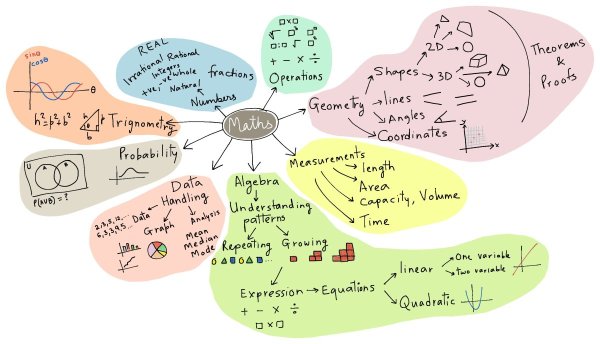 Maths
REAL
Irrational Rational
Integers
+ve, -ve whole
Natural
fractions
Numbers
Operations
+ - × ÷
Geometry
Shapes
2D
3D
lines
Angles
Coordinates
x
Theorems
&
Proofs
Measurements
length
Area
Capacity, Volume
Time
Algebra
Understanding
patterns
Repeating
Growing
...
Expression
Equations
+ - × ÷
linear
One variable
two variable
Quadratic
Data
Handling
Data
2,3,5,12,...
Graph
Analysis
Mean
Median
Mode
Probability
U
A
B
P(AUB) = ?
Trignometry
sinθ
cosθ
θ
h²=p²+b²
h
b